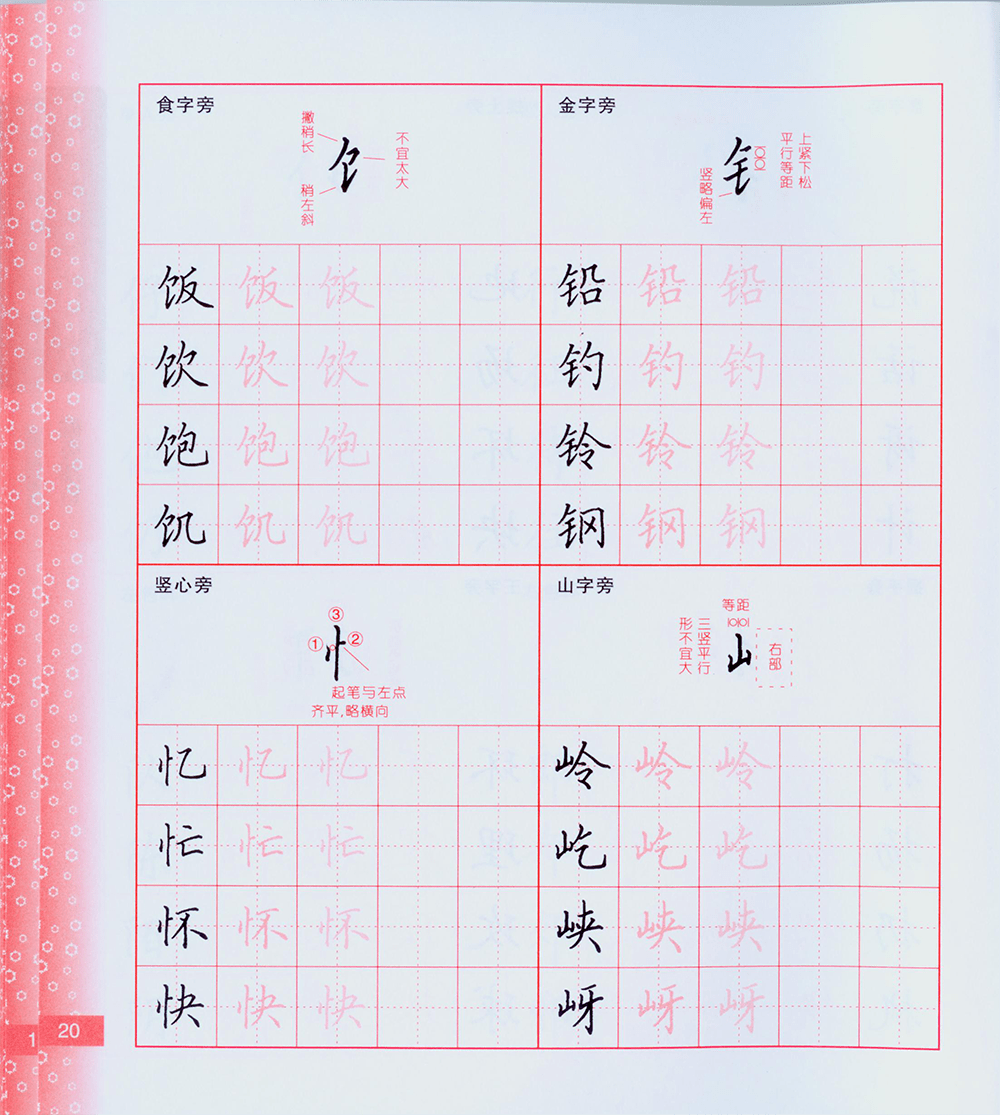 食字旁
撇稍长
饣
不宜太大
稍左斜
饭 饭 饭
饮 饮 饮
饱 饱 饱
饥 饥 饥
金字旁
上紧下松
平行等距
钅
竖略偏左
铅 铅 铅
钓 钓 钓
铃 铃 铃
钢 钢 钢
竖心旁
③
① 忄 ②
起笔与左点
齐平,略横向
忆 忆 忆
忙 忙 忙
怀 怀 怀
快 快 快
山字旁
等距
三竖平行
形不宜大
山
右部
岭 岭 岭
屹 屹 屹
峡 峡 峡
岈 岈 岈
1 20